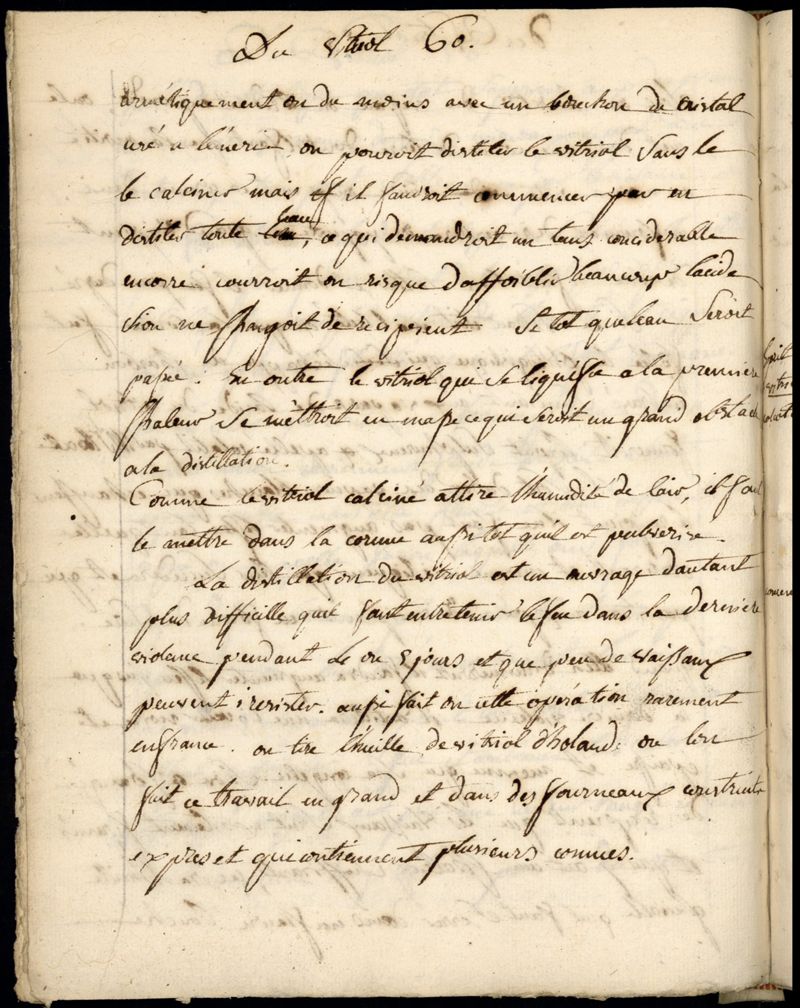 Du Vitriol 60.
ermetiquement ou du moins avec un bouchon de cristal
usé a lémeric, on pouroit distiler le vitriol sans le
le calciner mais il faudroit commencer par en
distiler toute leau, ce qui demandroit un tems considerable
encorre courroit on risque daffoiblir beaucoup lacide
sion ne changoit de recipient sitot queleau seroit
passé. En outre le vitriol qui se liquéfie a la premiere
chaleur se mettroit en masse ce qui seroit un grand obstacle
a la distillation.
Comme levitriol calciné attire lhumidité de lair, il faut
le mettre dans la cornue aussitot quil est pulverisé.
La distillation du vitriol est un ouvrage dautant
plus difficille quil faut entretenir le feu dans la derniere
violence pendant 4 ou 5 jours et que peu de vaissaux
peuvent i resister. aussi fait on cette opération rarement
enfrance. on tire lhuille de vitriol d'holande ou lon
fait ce travail en grand et dans des fourneaux construits
expres et qui contiennent plusieurs cornues.